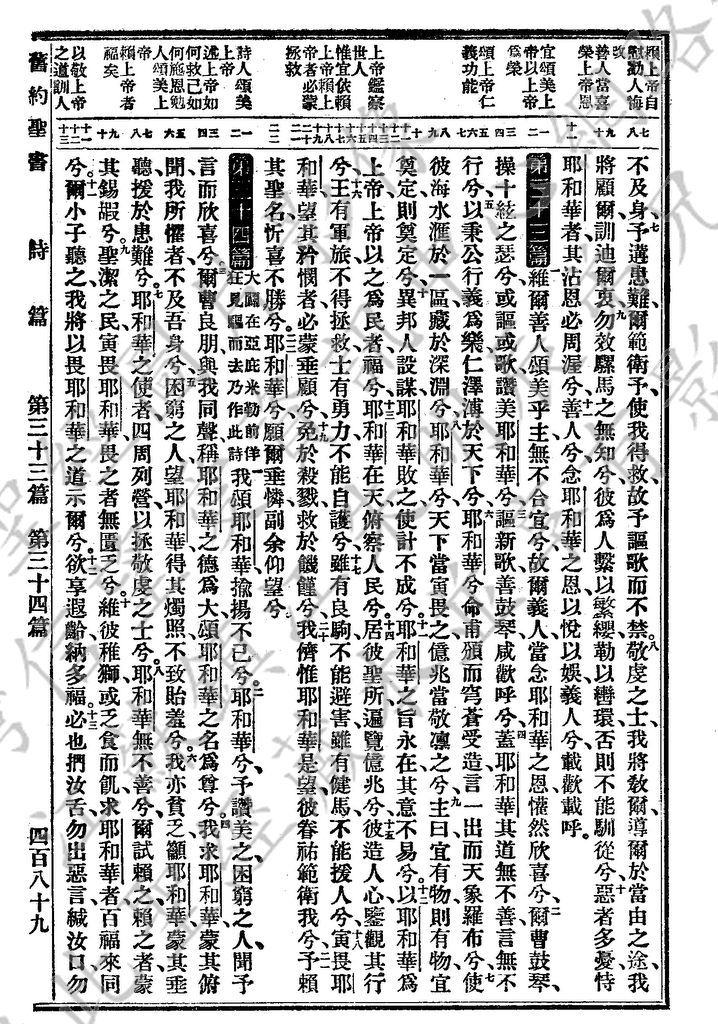 賴上帝自
慰勸人悔
改
善人當喜
樂上帝恩
宜頌美上
帝以上帝
爲樂
頌上帝仁
義功能
上帝鑑察
世人
惟宜依賴
上帝賴上
帝者必蒙
拯救
詩人頌美
上帝
述上帝如
何救己如
何施恩勉
人頌美上
帝
賴上帝者
福矣
以敬上帝
之道訓人
不及身予遘患難爾範衛予使我得救故予謳歌而不禁敬虔之士我將教爾導爾於當由之途我
將顧爾訓迪爾衷勿效騾馬之無知兮彼爲人繫以繁纓勒以轡環否則不能馴從兮惡者多憂恃
耶和華者其沾恩必周渥兮善人兮念耶和華之恩以悅以娛義人兮載歡載呼
第三十三篇 維爾善人頌美乎主無不合宜兮故爾義人當念耶和華之恩懽然欣喜兮爾曹鼓琴
操十絃之瑟兮或謳或歌讚美耶和華兮謳新歌善鼓琴咸歡呼兮蓋耶和華其道無不善言無不
行兮以秉公行義爲樂仁澤溥於天下兮耶和華兮命甫頒而穹蒼受造言一出而天象羅布兮使
彼海水滙於一區藏於深淵兮耶和華兮天下當寅畏之億兆當敬凜之兮主曰宜有物則有物宜
奠定則奠定兮異邦人設謀耶和華敗之使計不成兮耶和華之旨永在其意不易兮以耶和華爲
上帝上帝以之爲民者福兮耶和華在天俯察人民兮居彼聖所遍覽億兆兮彼造人心鑒觀其行
兮王有軍旅不得拯救士有勇力不能自護兮雖有良駒不能避害雖有健馬不能援人兮寅畏耶
和華望其矜憫者必蒙垂顧兮免於殺戮救於饑饉兮我儕惟耶和華是望彼眷祐範衛我兮予賴
其聖名忻喜不勝兮耶和華兮願爾垂憐副余仰望兮
第三十四篇 大闢在亞庇米勒前佯狂見驅而去乃作此詩 我頌耶和華揄揚不已兮耶和華兮予讚美之困窮之人聞予
言而欣喜兮爾曹良朋與我同聲稱耶和華之德爲大頌耶和華之名爲尊兮我求耶和華蒙其俯
聞我所懼者不及吾身兮困窮之人望耶和華得其燭照不致貽羞兮我亦貧乏籲耶和華蒙其垂
聽援於患難兮耶和華之使者四周列營以拯敬虔之士兮耶和華無不善兮爾試賴之賴之者蒙
其錫嘏兮聖潔之民寅畏耶和華畏之者無匱乏兮維彼稚獅或乏食而飢求耶和華者百福來同
兮爾小子聽之我將以畏耶和華之道示爾兮欲享遐齡納多福必也捫汝舌勿出惡言緘汝口勿
舊約聖書 詩篇 第三十三篇 第三十四篇 四百八十九